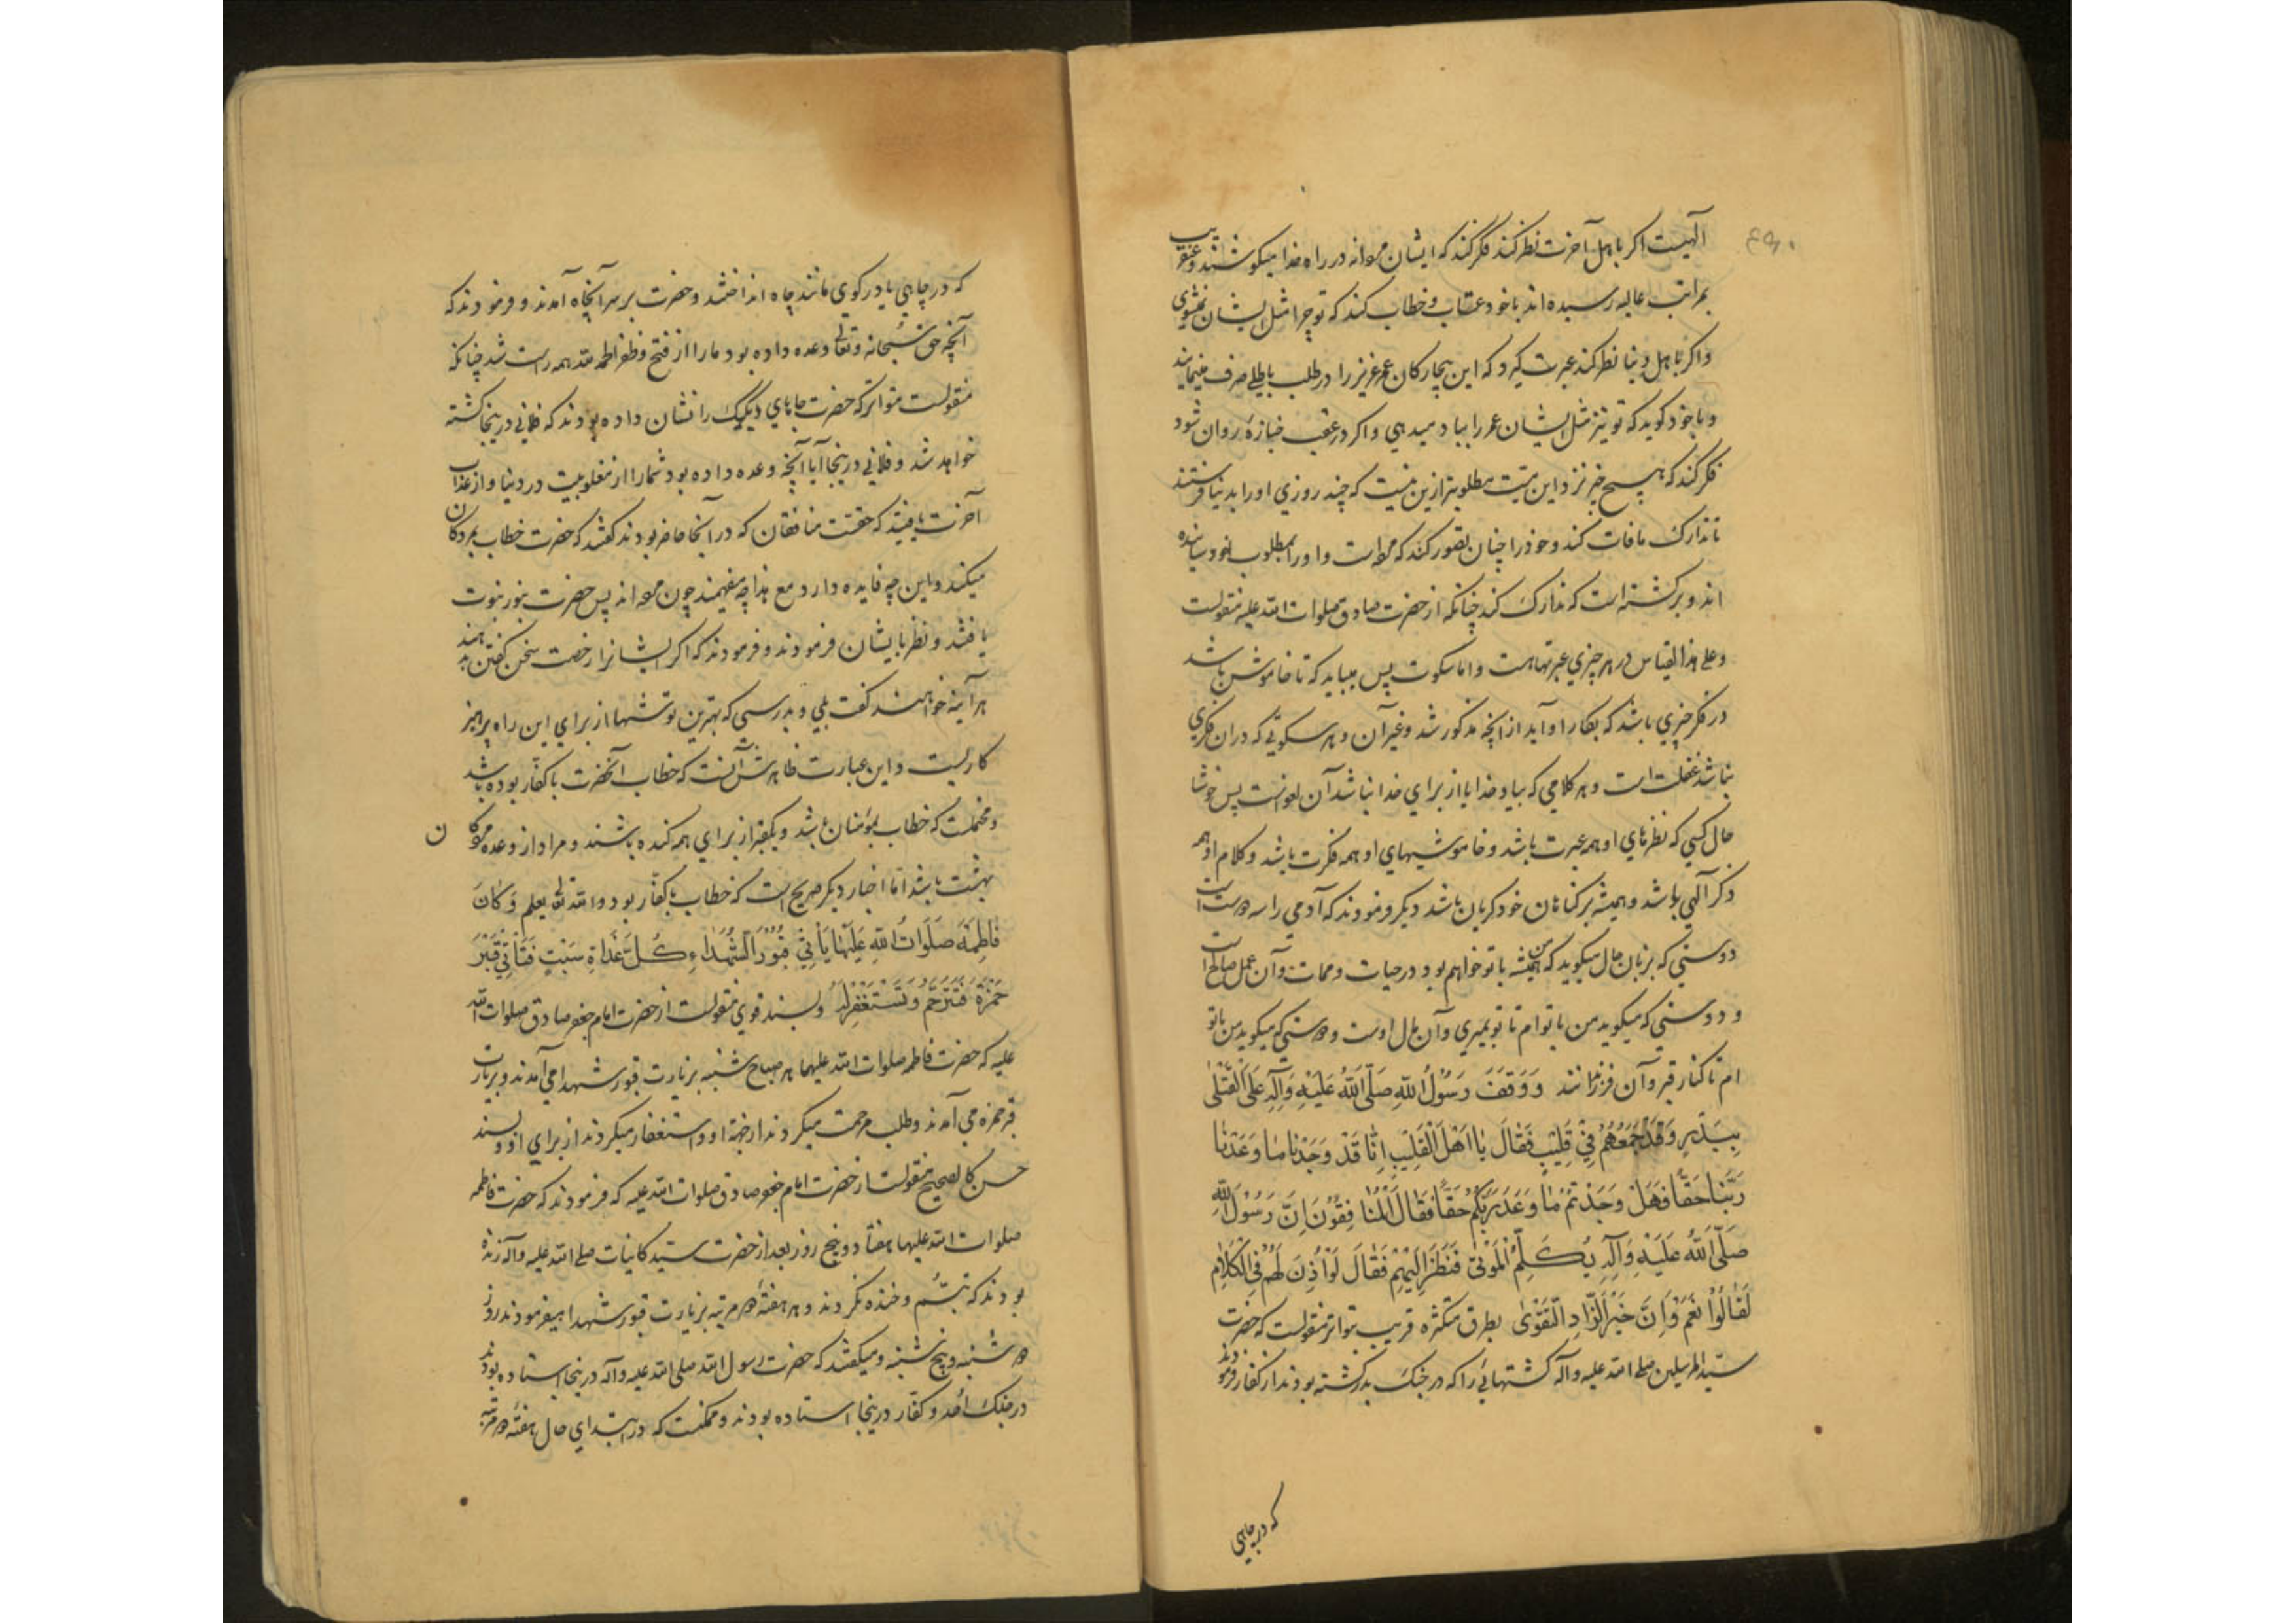 الهیست اکر باهل آخرت نظر کند فکر کند که ایشان مردانه در راه خدا میکوشند و عنقریب
بمراتب عالیه رسیده اند با خود عتاب و خطاب کند که تو چرا مثل ایشان نمیشوی
و اکر باهل دنیا نظر کند عبرت کیرد که این بیچارکان عمر عزیز را در طلب باطلی صرف مینمایند
و با خود کوید که تو نیز مثل ایشان عمر را بباد میدهی و اکر در عقب جنازهٔ روان شود
فکر کند که هیچ چیز نزد این میت مطلوبتر ازین نیست که چند روزی او را بدنیا فرستند
تا تدارک مافات کند و خود را چنان تصور کند که مرده است و او را بمطلوب خود رسانیده
اند و برکشته است که تدارک کند چنانکه از حضرت صادق صلوات الله علیه منقولست
و علی هذا القیاس در هر چیزی عبرتهاست و اما سکوت پس میباید که تا خاموش باشد
در فکر چیزی باشد که بکار او آید از آنچه مذکور شد و غیر آن و هر سکوتی که در ان فکری
نباشد غفلت است و هر کلامی که بیاد خدا یا از برای خدا نباشد آن لغو است پس خوشا
حال کسی که نظرهای او همه عبرت باشد و خاموشیهای او همه فکرت باشد و کلام او همه
ذکر الهی باشد و همیشه بر کناهان خود کریان باشد دیکر فرمودند که آدمی را سه دوست است
دوستی که بزبان حال میکوید که من همیشه با تو خواهم بود در حیات و ممات و آن عمل صالح است
و دوستی که میکوید من با توام تا تو بمیری و آن مال اوست و دوستی که میکوید من با تو
ام تا کنار قبر و آن فرزندانند وَوَقَفَ رَسُولُ اللهِ صَلَّی اللهُ عَلَیْهِ وَآلِهِ عَلَی الْقَتْلیٰ
بِبَدْرٍ وَقَدْ جَمَعَهُمْ فِی قَلِیْبٍ فَقٰالَ یٰا اَهْلَ الْقَلِیْبِ اِنّٰا قَدْ وَجَدْنٰا مٰا وَعَدَنٰا
رَبُّنٰا حَقّاً فَهَلْ وَجَدْتُمْ مٰا وَعَدَ رَبُّکُمْ حَقّاً فَقٰالَ الْمُنٰافِقُوْنَ اِنَّ رَسُوْلَ اللهِ
صَلَّی اللهُ عَلَیْهِ وَآلِهِ یُکَلِّمُ الْمَوْتیٰ فَنَظَرَ اِلَیْهِمْ فَقٰالَ لَوْ اُذِنَ لَهُمْ فِی الْکَلٰامِ
لَقٰالُوْا نَعَمْ وَاِنَّ خَیْرَ الزّٰادِ التَّقْویٰ بطرق متکثره قریب بتواتر منقولست که حضرت
سید المرسلین صلی الله علیه وآله کشتهائی را که در جنک بدر کشته بودند از کفار فرمودند
که در چاهی
که در چاهی یا در کوی مانند چاه انداختند و حضرت بر سر آنچاه آمدند و فرمودند که
آنچه حق سُبحانه و تعالی وعده داده بود ما را از فتح و ظفر الحمد لله همه راست شد چنانکه
منقولست متواتر که حضرت جاهای دیک یک را نشان داده بودند که فلانی درینجا کشته
خواهد شد و فلانی درینجا آیا آنچه وعده داده بود شما را از مغلوبیت در دنیا و از عذاب
آخرت یافتید که حقست منافقان که در آنجا حاضر بودند کفتند که حضرت خطاب بمردکان
میکند و این چه فایده دارد مع هذا چه میفهمند چون مرده اند پس حضرت بنور نبوت
یافتند و نظر بایشان فرمودند و فرمودند که اکر ایشانرا رخصت سخن کفتن بدهند
هر آینه خواهند کفت بلی و بدرستی که بهترین توشها از برای این راه پرهیز
کاریست و این عبارت ظاهرش آنست که خطاب آنحضرت با کفار بوده باشد
و محتملست که خطاب بمؤمنان باشد و یکقبر از برای همه کنده باشند و مراد از وعده مردکان
بهشت باشد اما اخبار دیکر صریح است که خطاب با کفّار بود و الله تعالی یعلم وَ کَانَ
فَاطِمَةُ صَلَوَاتُ اللهِ عَلَیْهٰا یَأْتِیْ قُبُوْرَ الشُّهَدٰاءِ کُلَّ غَدٰاةِ سَبْتٍ فَتَأْتِیْ قَبْرَ
حَمْزَةَ فَتَتَرَحَّمُ وَتَسْتَغْفِرُ لَهُ و بسند قوی منقولست از حضرت امام جعفر صادق صلوات الله
علیه که حضرت فاطمه صلوات الله علیهما هر صباح شنبه بزیارت قبور شهدا می آمدند و بزیارت
قبر حمزه می آمدند و طلب مرحمت میکردند از جهة او و استغفار میکردند از برای او و بسند
حسن کالصحیح منقولست از حضرت امام جعفر صادق صلوات الله علیه که فرمودند که حضرت فاطمه
صلوات الله علیها هفتاد و پنج روز بعد از حضرت سید کاینات صلی الله علیه وآله زنده
بودند که تبسُّم و خنده نکردند و هر هفتهٔ دو مرتبه بزیارت قبور شهدا میفرمودند روز
دو شنبه و پنج شنبه و میکفتند که حضرت رسول الله صلی الله علیه وآله درینجا استاده بودند
در جنک اُحد و کفّار درینجا استاده بودند و ممکنست که در ابتدای حال هفتهٔ دو مرتبه